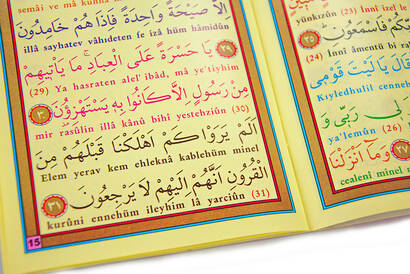 semâi ve mâ kün
إِلَّا صَيْحَةً وَاحِدَةً فَإِذَا هُمْ خَامِدُونَ
illâ sayhaten vâhdeten fe izâ hüm hâmidûn
٢٩ يَا حَسْرَةً عَلَى الْعِبَادِ مَا يَأْتِيهِمْ
(29) Ya hasraten alel ibâd, mâ ye'tiyhim
مِنْ رَسُولٍ إِلَّا كَانُوا بِهِ يَسْتَهْزِؤُنَ ٣٠
mir rasûlin illâ kânû bihi yestehziûn (30)
أَلَمْ يَرَوْا كَمْ أَهْلَكْنَا قَبْلَهُمْ مِنَ
Elem yerav kem ehleknâ kablehüm minel
الْقُرُونِ أَنَّهُمْ إِلَيْهِمْ لَا يَرْجِعُونَ ٣١
kurûni ennehüm ileyhim lâ yarciûn (31)
15
yünkızûn (23) Innî izel le
٢٥
فَاسْمَعُونِ
(24) Innî âmentü bi ra
قَالَ يَا لَيْتَ قَوْمِي
Kıyledhulil cennet
رَبِّي وَ
ya'lemûn (26)
٢٧ وَمَا أَنْزَلْنَا
cealenî minel